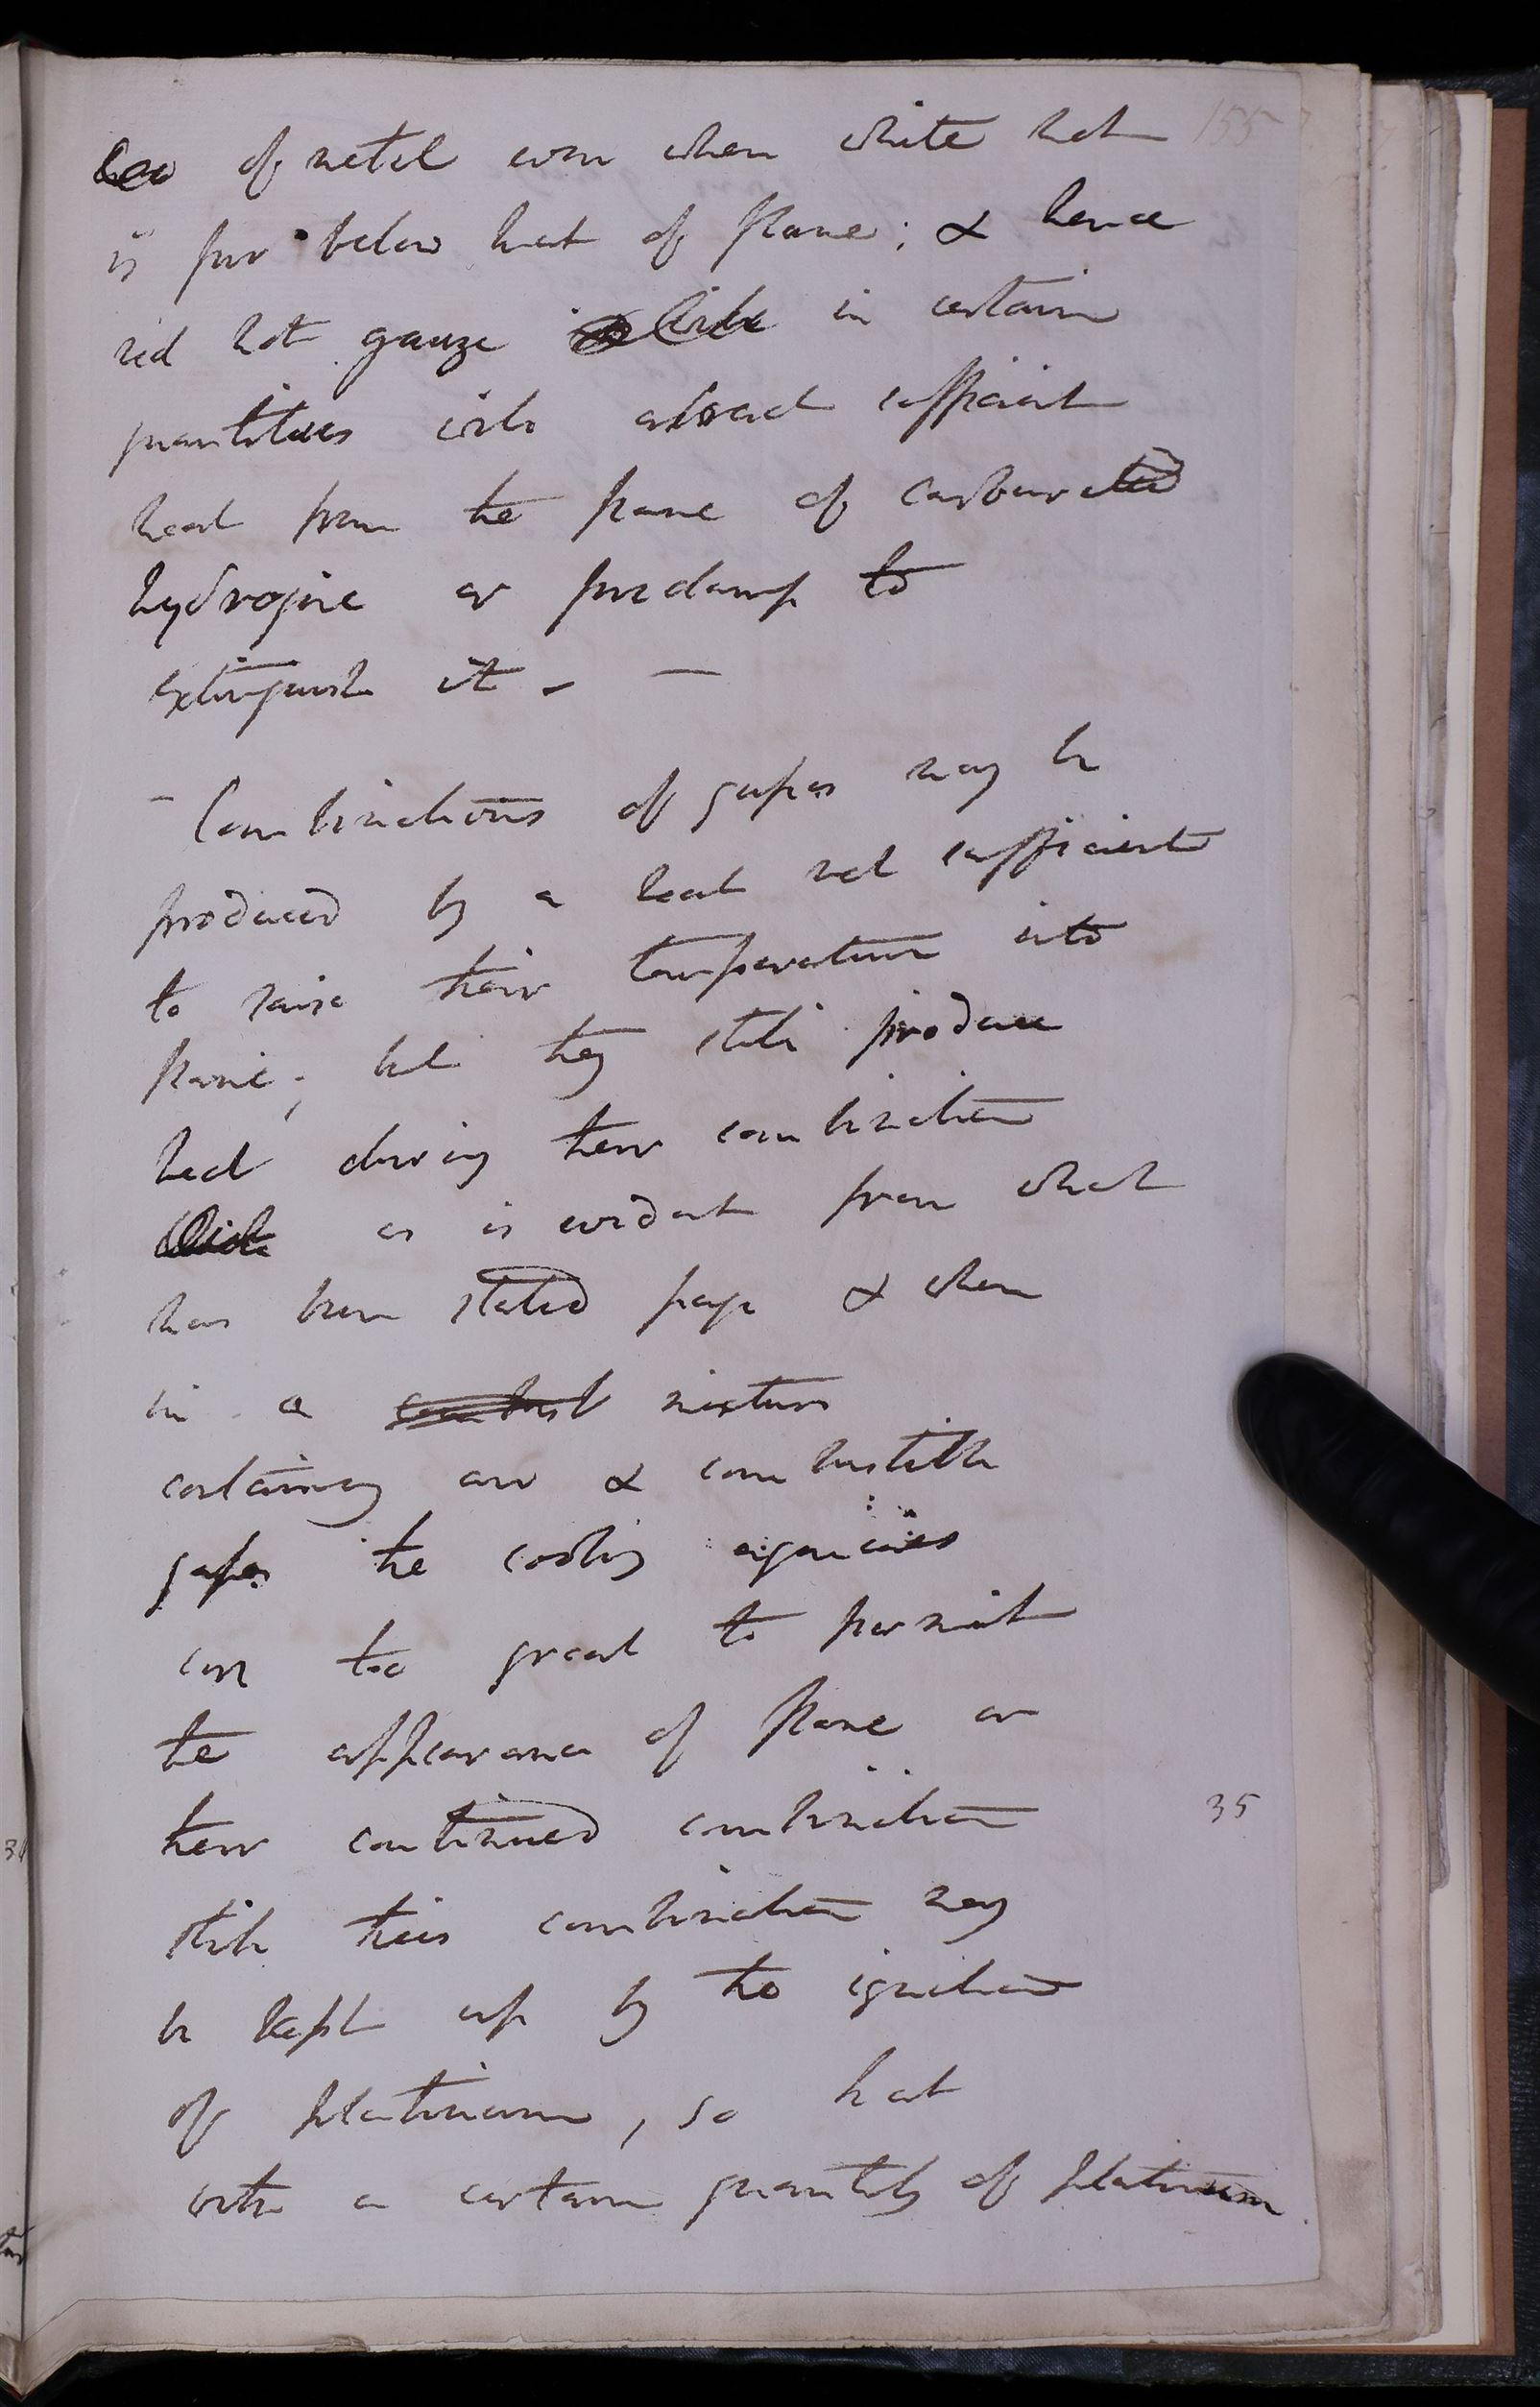 155
of metal even when white hot
is far below heat of flame; & hence
red hot gauze in certain
quantities will abstract sufficient
heat from the flame of carburetted
hydrogene or fire damp to
extinguish it. —
— Combinations of gases may be
produced by a heat not sufficient
to raise their temperature into
flame; but they still produce
heat during their combination
as is evident from what
has been stated page & when
in a mixture
containing air & combustible
gases the cooling agencies
are too great to permit
the appearance of flame or
their continued combination
35
still this combination may
be kept up by the ignition
of platinum, so that
with a certain quantity of platinum